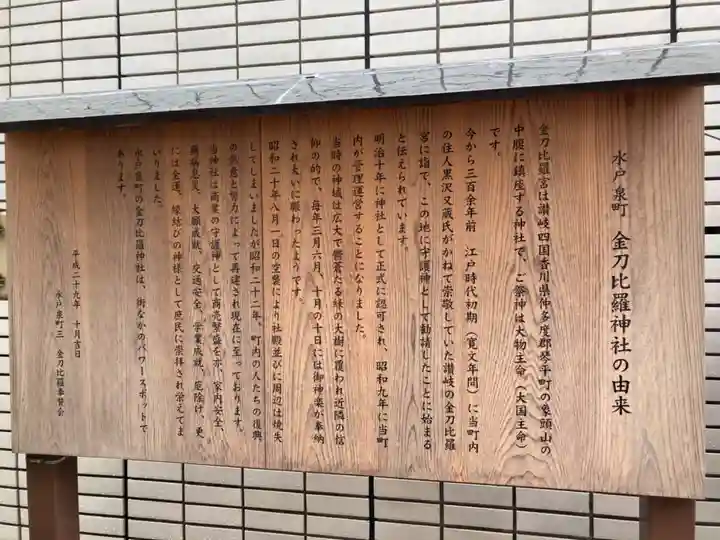 水戸泉町 金刀比羅神社の由来
金刀比羅宮は讃岐四国香川県仲多度郡琴平町の象頭山の
中腹に鎮座する神社で、ご祭神は大物主命（大国主命）
です。
今から三百余年前 江戸時代初期（寛文年間）に当町内
の住人黒沢又蔵氏がかねて崇敬していた讃岐の金刀比羅
宮に詣で、この地に守護神として勧請したことに始まる
と伝えられています。
明治十年に神社として正式に認可され、昭和九年に当町
内が管理運営することになりました。
当時の神域は広大で鬱蒼たる緑の大樹に覆われ近隣の信
仰の的で、毎年三月六月、十月の十日には御神楽が奉納
され大いに賑わったようです。
昭和二十年八月一日の空襲により社殿並びに周辺は焼失
してしまいましたが昭和二十二年。町内の人たちの復興
の熱意と努力によって再建され現在に至っております。
当神社は商業の守護神として商売繁盛を亦、家内安全、
無病息災、大願成就、交通安全、学業成就、厄除け、更
には金運、縁結びの神様として庶民に崇拝され栄えてま
いりました。
水戸泉町の金刀比羅神社は、街なかのパワースポットで
あります。
平成二十九年 十月吉日
水戸泉町三 金刀比羅奉賛会